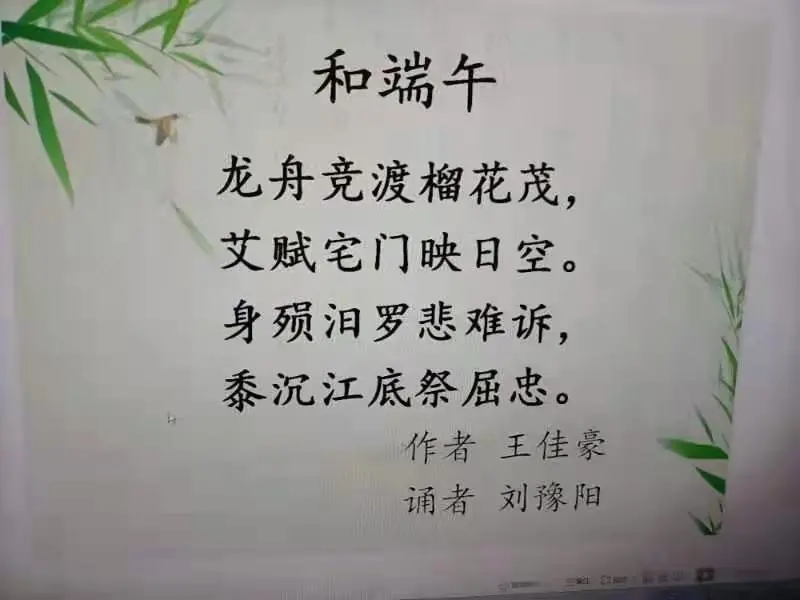 和端午
龙舟竞渡榴花茂，
艾赋宅门映日空。
身殒汨罗悲难诉，
黍沉江底祭屈忠。
作者 王佳豪
诵者 刘豫阳